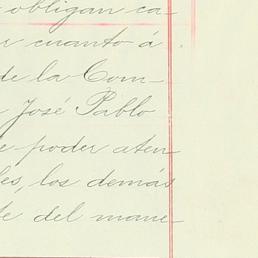 obligan ca-
cuanto á
de la Com-
José Pablo
poder aten
les, los demás
te del mane-